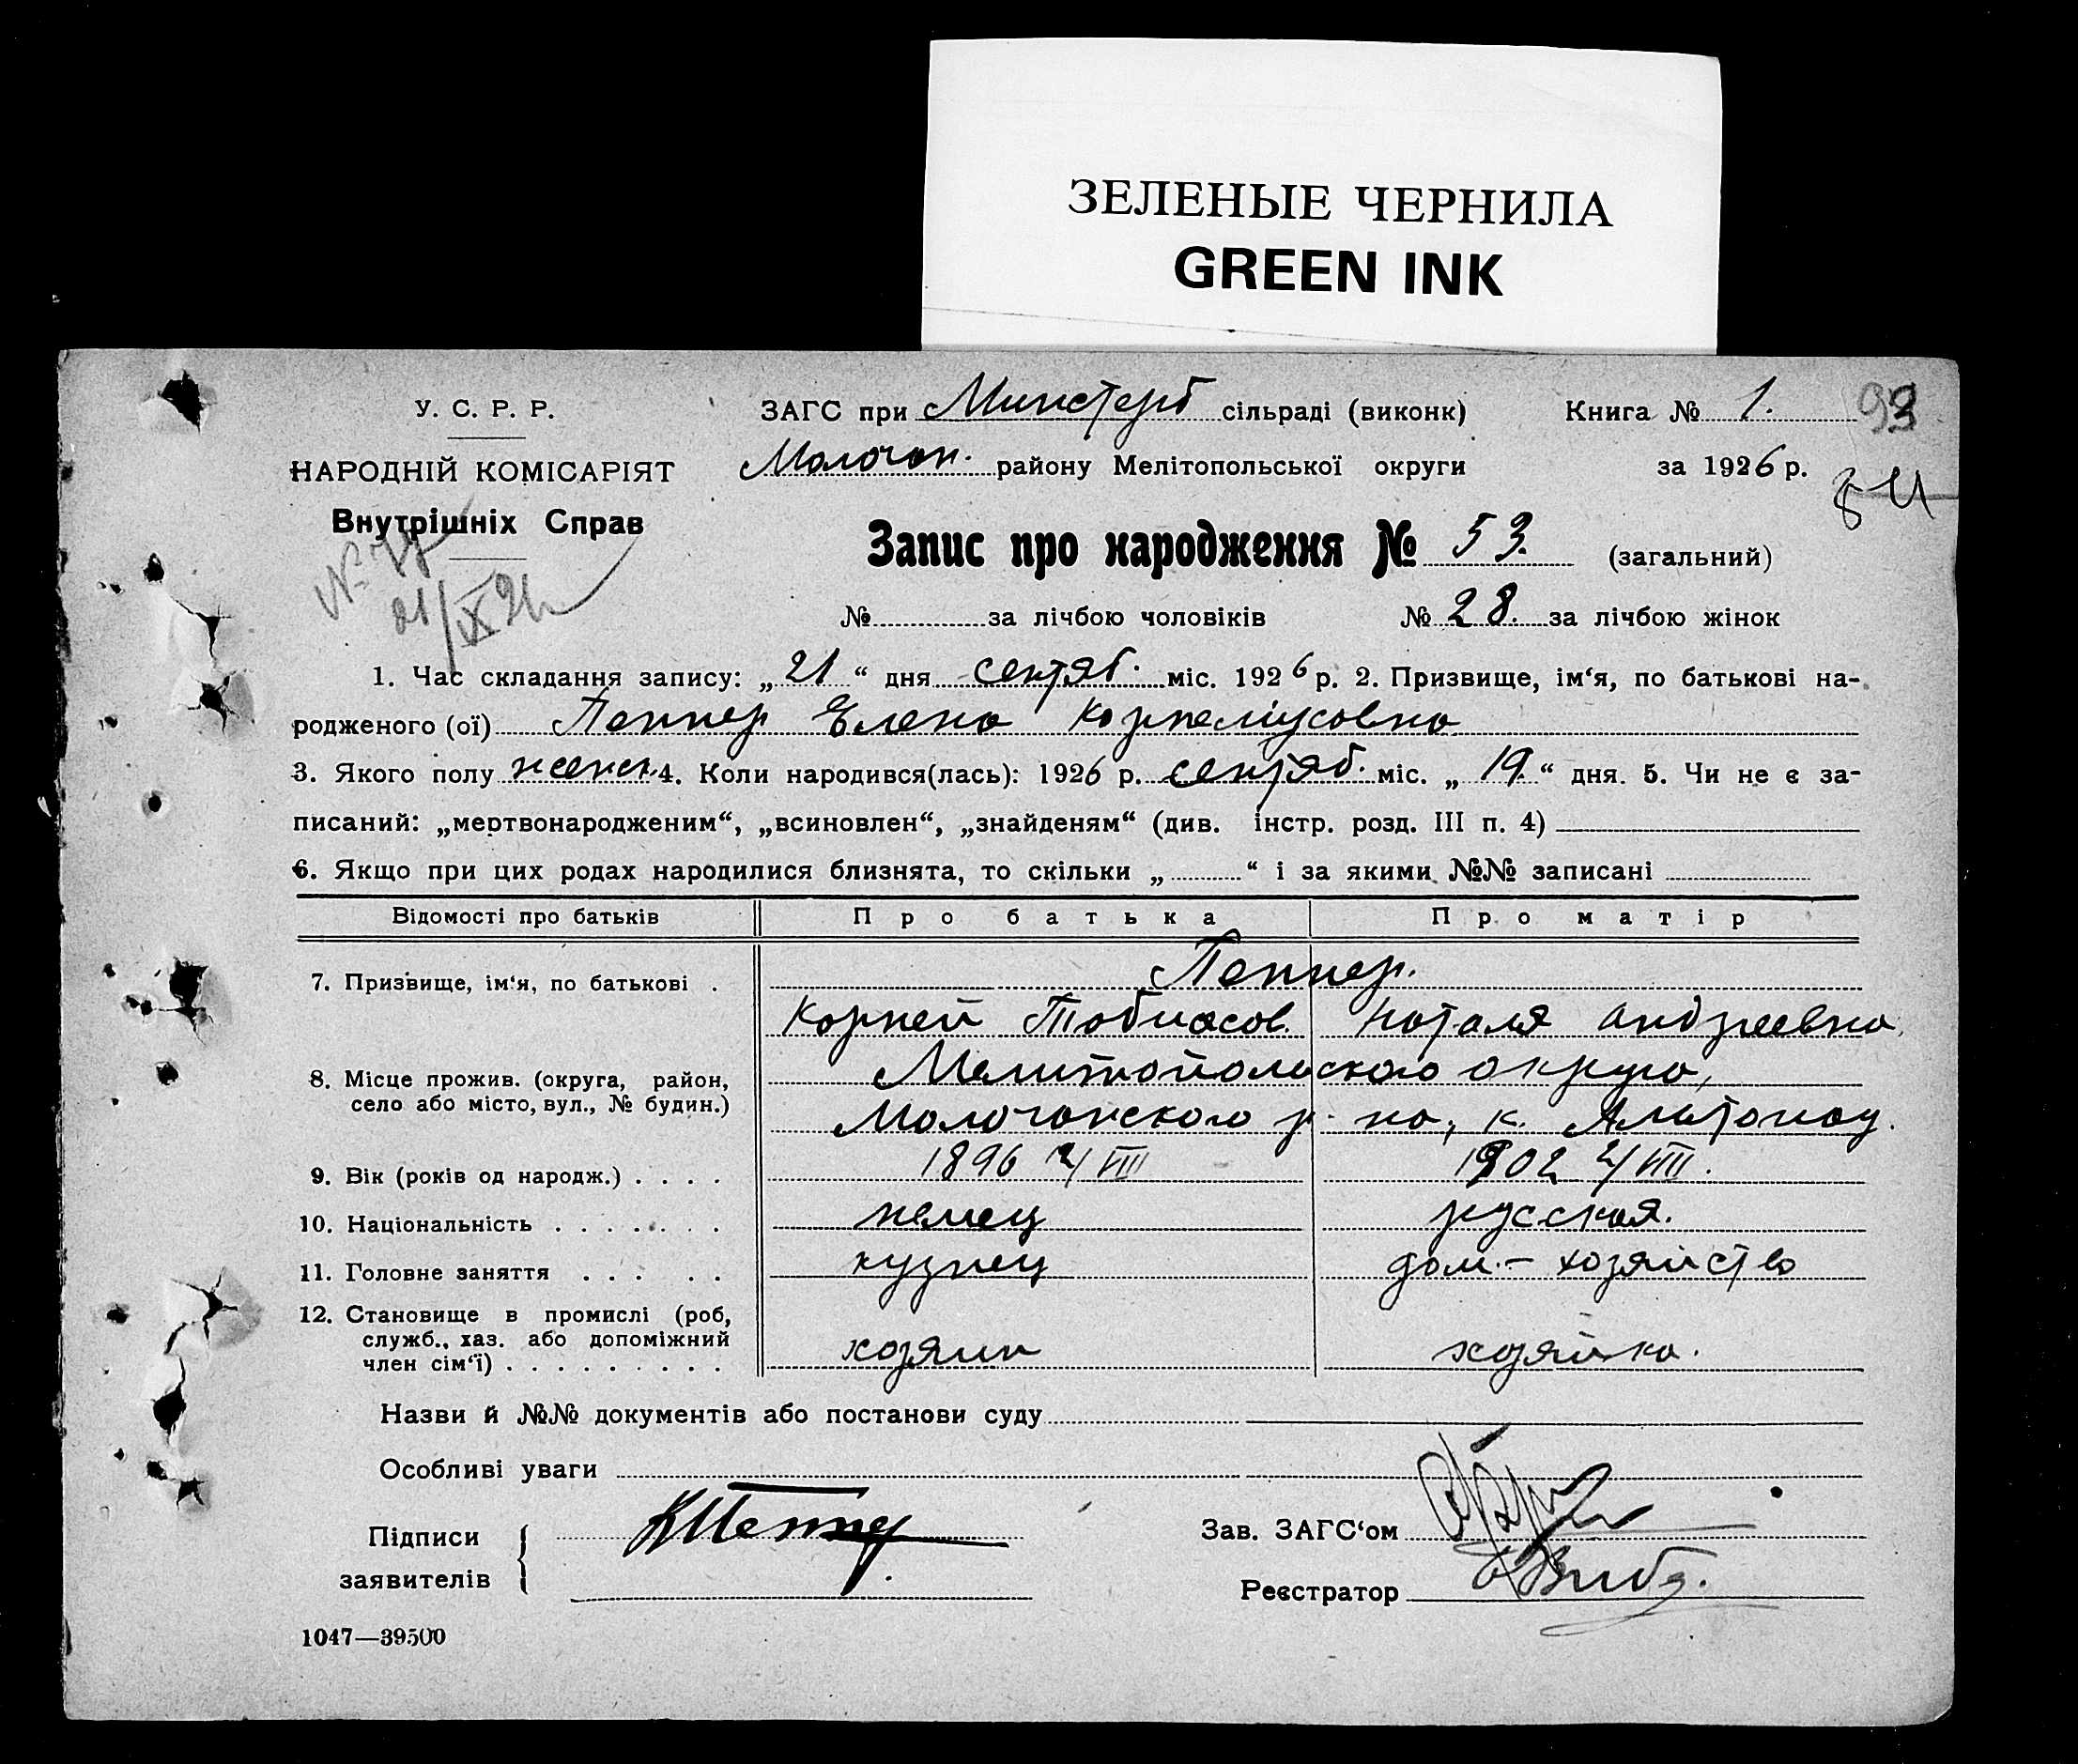 ЗЕЛЕНЫЕ ЧЕРНИЛА
GREEN INK
У. С. Р. Р.
НАРОДНІЙ КОМІСАРІЯТ
Внутрішніх Справ
ЗАГС при Минстерб сільраді (виконк) Книга № 1. 93
Молочан. району Мелітопольської округи за 1926 р.
Запис про народження № 53. (загальний)
№ за лічбою чоловіків № 28. за лічбою жінок
1. Час складання запису: „21“ дня сентяб. міс. 1926 р. 2. Призвище, ім‘я, по батькові на-
родженого (ої) Пеннер Елена Корнеліусовна
3. Якого полу женск 4. Коли народився(лась): 1926 р. сентяб. міс. „19.“ дня. 5. Чи не є за-
писаний: „мертвонародженим“, „всиновлен“, „знайденям“ (див. інстр. розд. III п. 4)
6. Якщо при цих родах народилися близнята, то скільки „ “ і за якими №№ записані
Відомості про батьків Про батька Про матір
7. Призвище, ім‘я, по батькові . Пеннер.
Корней Тобиасов. Наталя Андреевна,
8. Місце прожив. (округа, район, село або місто, вул., № будин.) Мелитопольского округа,
Молочанского р-на, к. Альтонау.
9. Вік (років од народж.) . . . . 1896 2/VIII 1902 2/VIII.
10. Національність . . . . . . . немец русская.
11. Головне заняття . . . . . кузнец дом.- хозяйство
12. Становище в промислі (роб,
служб., хаз. або допоміжний
член сім‘ї) . . . . . . . . . хозяин хозяйка.
Назви й №№ документів або постанови суду
Особливі уваги
Підписи заявителів КПеннер Зав. ЗАГС‘ом
Реєстратор
1047—39500